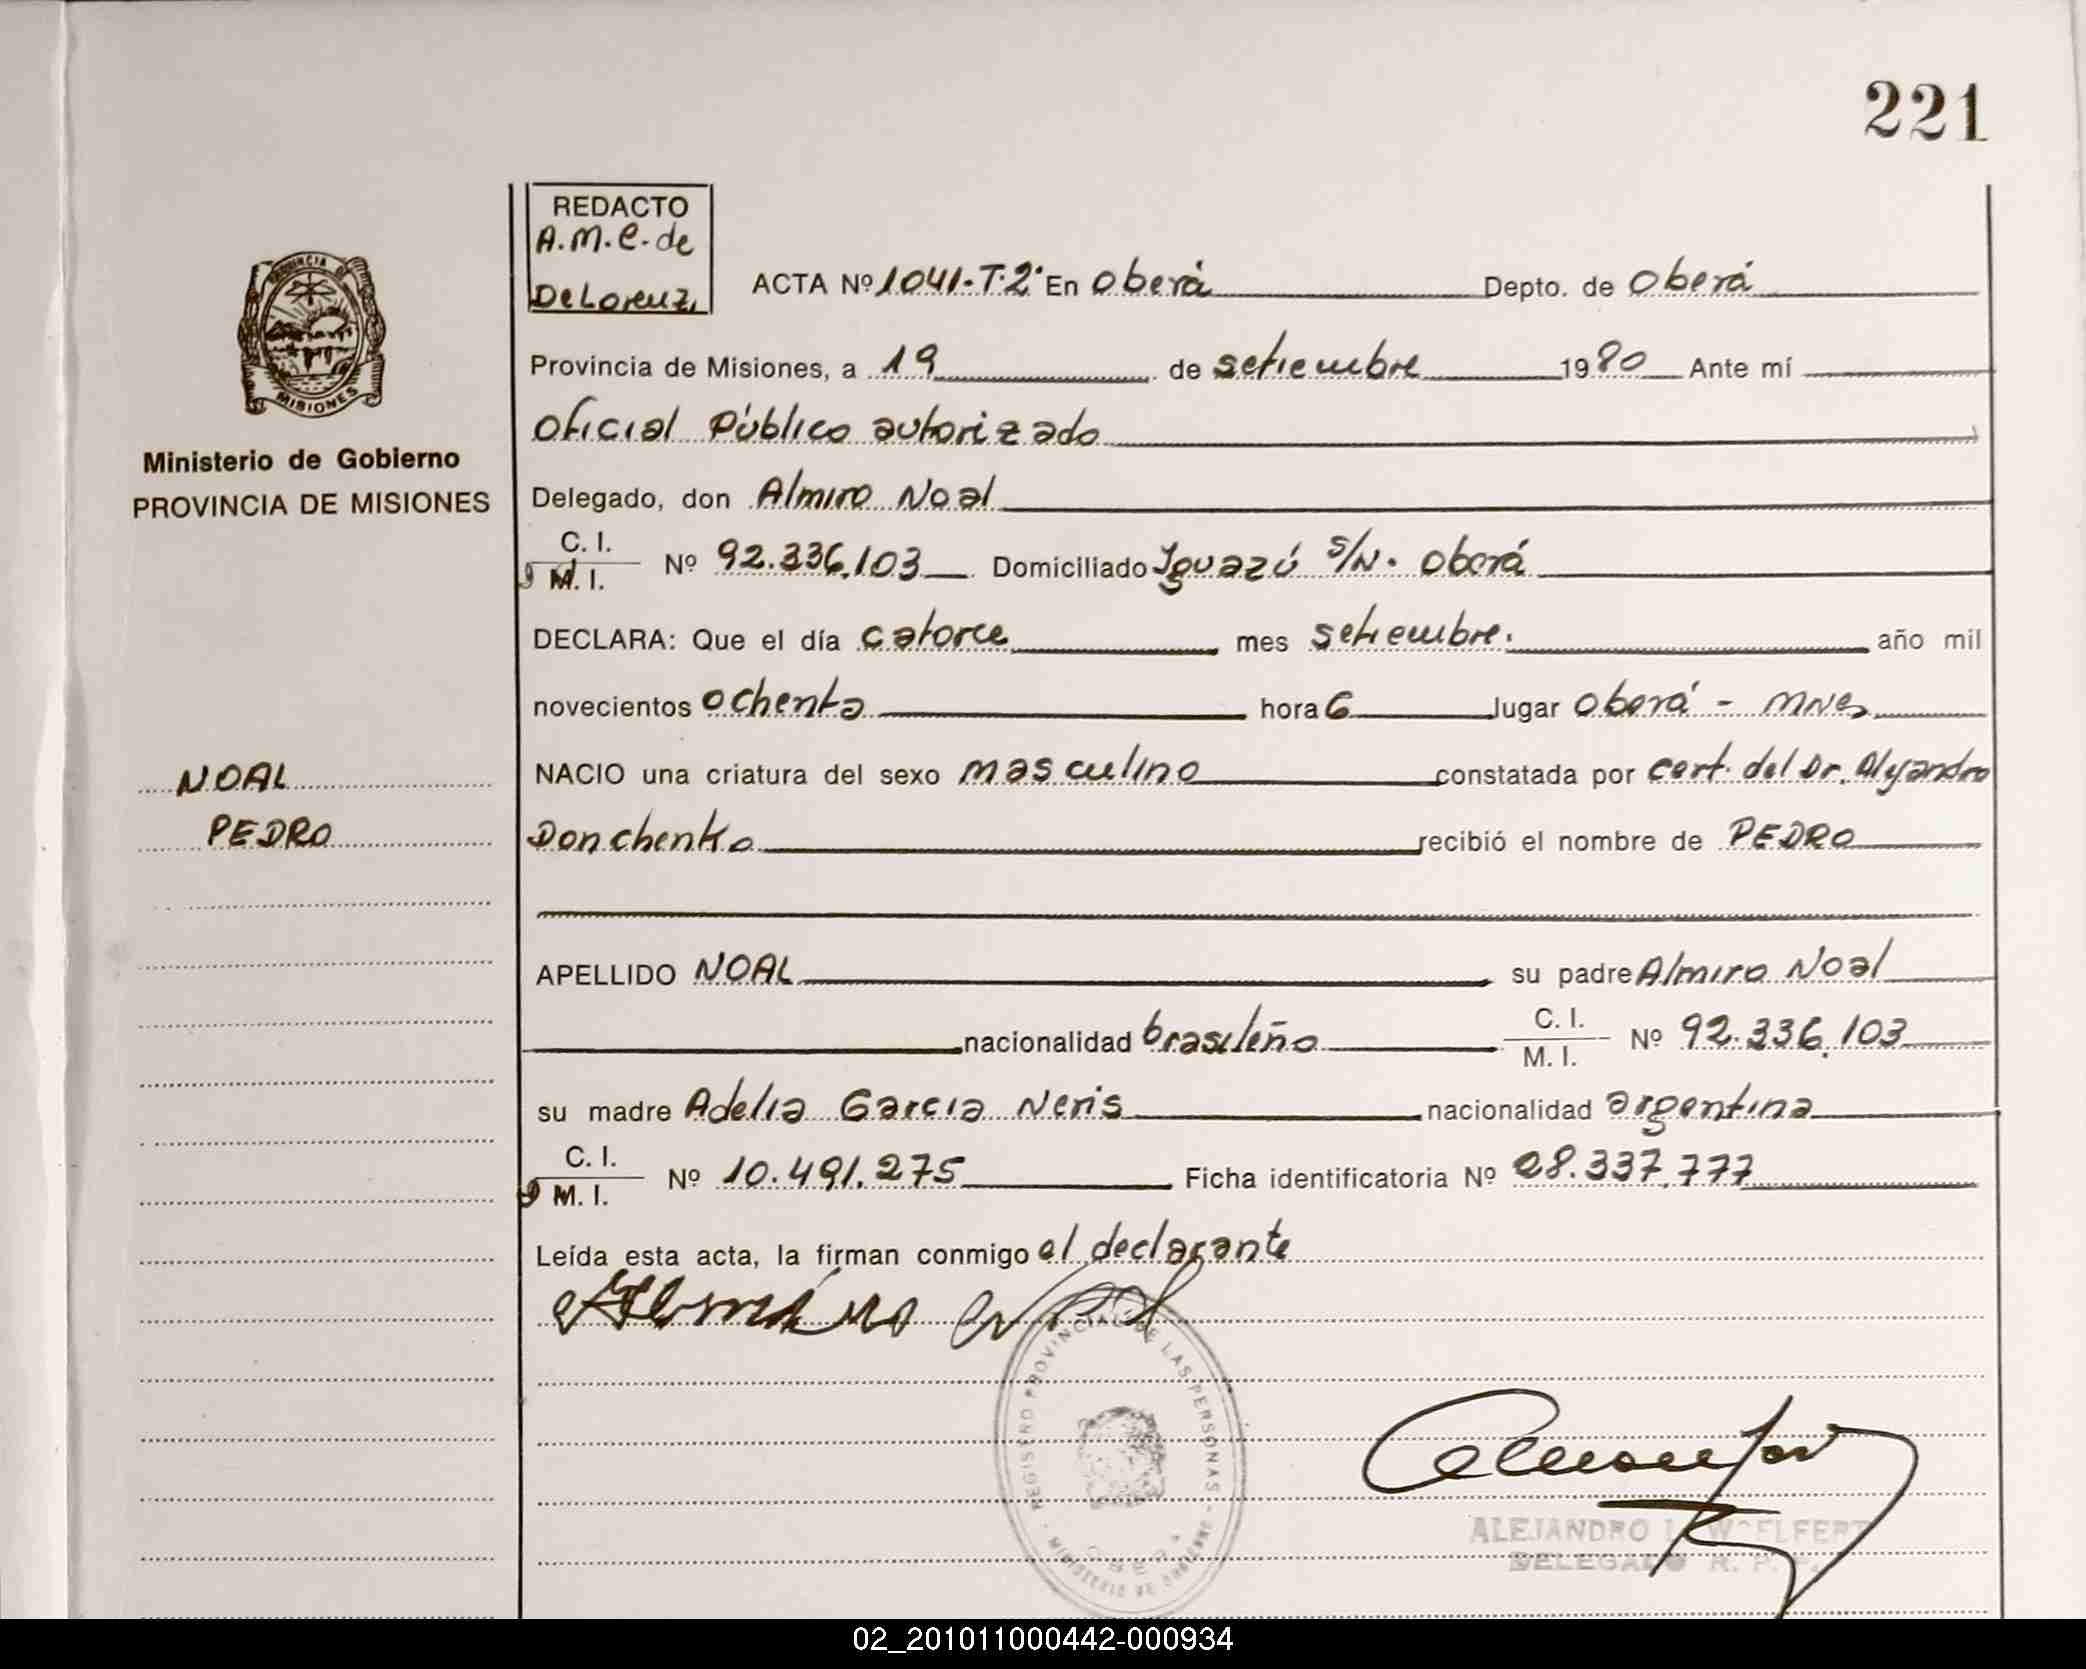 221
REDACTO
A.M.C. de
DeLorenz,
ACTA Nº 1041-T.2° En Oberá Depto. de Oberá
Provincia de Misiones, a 19 de setiembre 1980 Ante mí
Oficial Público autorizado
Delegado, don Almiro Noal
C. I.
M. I. Nº 92.336.103 Domiciliado Iguazú s/N. Oberá
DECLARA: Que el día catorce mes setiembre. año mil
novecientos ochenta hora 6 lugar Oberá - Mnes
NACIO una criatura del sexo masculino constatada por cert. del Dr. Alejandro
Donchenko recibió el nombre de PEDRO
APELLIDO NOAL su padre Almiro Noal
nacionalidad brasileño C. I. M. I. Nº 92.336.103
su madre Adelia Garcia Neris nacionalidad argentina
C. I.
M. I. Nº 10.491.275 Ficha identificatoria Nº 28.337.777
Leída esta acta, la firman conmigo el declarante
PROVINCIA DE
MISIONES
Ministerio de Gobierno
PROVINCIA DE MISIONES
NOAL
PEDRO
REGISTRO PROVINCIAL DE LAS PERSONAS - MINISTERIO DE GOBIERNO -
ALEJANDRO WOELFERT
DELEGADO R. P. P.
02_201011000442-000934